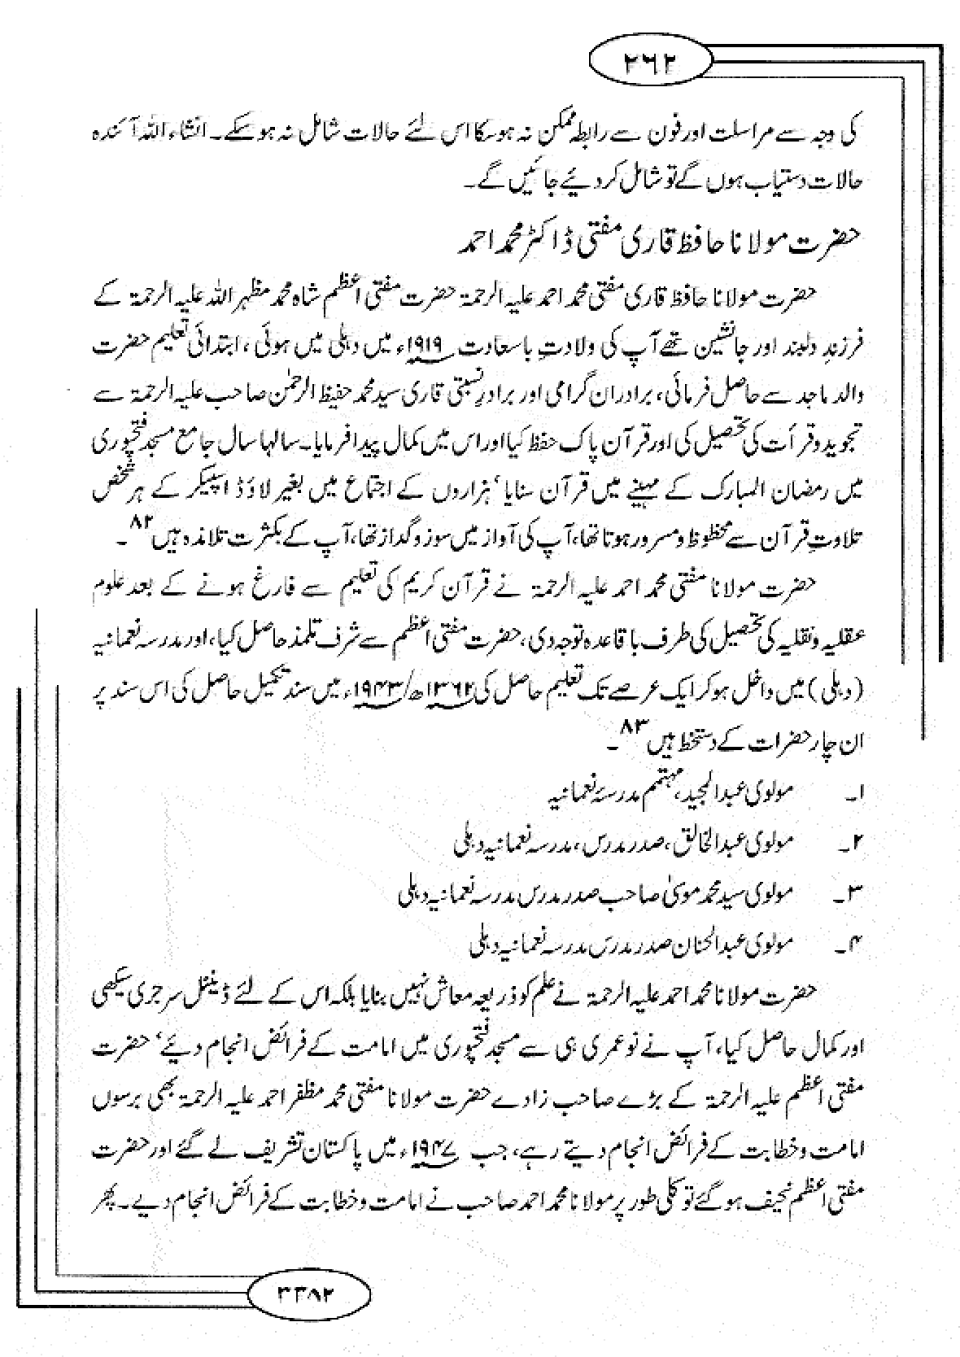 ۲۶۲
کی وجہ سے مراسلت اور فون سے رابطہ ممکن نہ ہو سکا اس لئے حالات شامل نہ ہو سکے۔ انشاء اللہ آئندہ
حالات دستیاب ہوں گے تو شامل کر دیئے جائیں گے۔
حضرت مولانا حافظ قاری مفتی ڈاکٹر محمد احمد
حضرت مولانا حافظ قاری مفتی محمد احمد علیہ الرحمۃ حضرت مفتی اعظم شاہ محمد مظہر اللہ علیہ الرحمۃ کے
فرزند دلبند اور جانشین تھے آپ کی ولادتِ باسعادت ۱۹۱۹ء میں دہلی میں ہوئی، ابتدائی تعلیم حضرت
والد ماجد سے حاصل فرمائی، برادران گرامی اور برادرِ نسبتی قاری سید محمد حفیظ الرحمٰن صاحب علیہ الرحمۃ سے
تجوید و قرأت کی تحصیل کی اور قرآن پاک حفظ کیا اور اس میں کمال پیدا فرمایا۔ سالہا سال جامع مسجد فتحپوری
میں رمضان المبارک کے مہینے میں قرآن سنایا، ہزاروں کے اجتماع میں بغیر لاؤڈ اسپیکر کے ہر شخص
تلاوتِ قرآن سے محظوظ و مسرور ہوتا تھا، آپ کی آواز میں سوز و گداز تھا، آپ کے بکثرت تلامذہ ہیں ۸۲۔
حضرت مولانا مفتی محمد احمد علیہ الرحمۃ نے قرآن کریم کی تعلیم سے فارغ ہونے کے بعد علوم
عقلیہ و نقلیہ کی تحصیل کی طرف با قاعدہ توجہ دی، حضرت مفتی اعظم سے شرف تلمذ حاصل کیا، اور مدرسہ نعمانیہ
(دہلی) میں داخل ہو کر ایک عرصے تک تعلیم حاصل کی ۱۳۶۲ھ/۱۹۴۳ء میں سند تکمیل حاصل کی اس سند پر
ان چار حضرات کے دستخط ہیں ۸۳۔
۱۔ مولوی عبدالمجید، مہتمم مدرسۂ نعمانیہ
۲۔ مولوی عبدالخالق، صدر مدرس، مدرسہ نعمانیہ دہلی
۳۔ مولوی سید محمد موسیٰ صاحب صدر مدرس مدرسہ نعمانیہ دہلی
۴۔ مولوی عبدالحنان صدر مدرس مدرسہ نعمانیہ دہلی
حضرت مولانا محمد احمد علیہ الرحمۃ نے علم کو ذریعہ معاش نہیں بنایا بلکہ اس کے لئے ڈینٹل سرجری سیکھی
اور کمال حاصل کیا، آپ نے نو عمری ہی سے مسجد فتحپوری میں امامت کے فرائض انجام دیئے، حضرت
مفتی اعظم علیہ الرحمۃ کے بڑے صاحب زادے حضرت مولانا مفتی محمد مظفر احمد علیہ الرحمۃ بھی برسوں
امامت و خطابت کے فرائض انجام دیتے رہے، جب ۱۹۴۷ء میں پاکستان تشریف لے گئے اور حضرت
مفتی اعظم نحیف ہو گئے تو کلی طور پر مولانا محمد احمد صاحب نے امامت و خطابت کے فرائض انجام دیے۔ پھر
۳۳۸۲